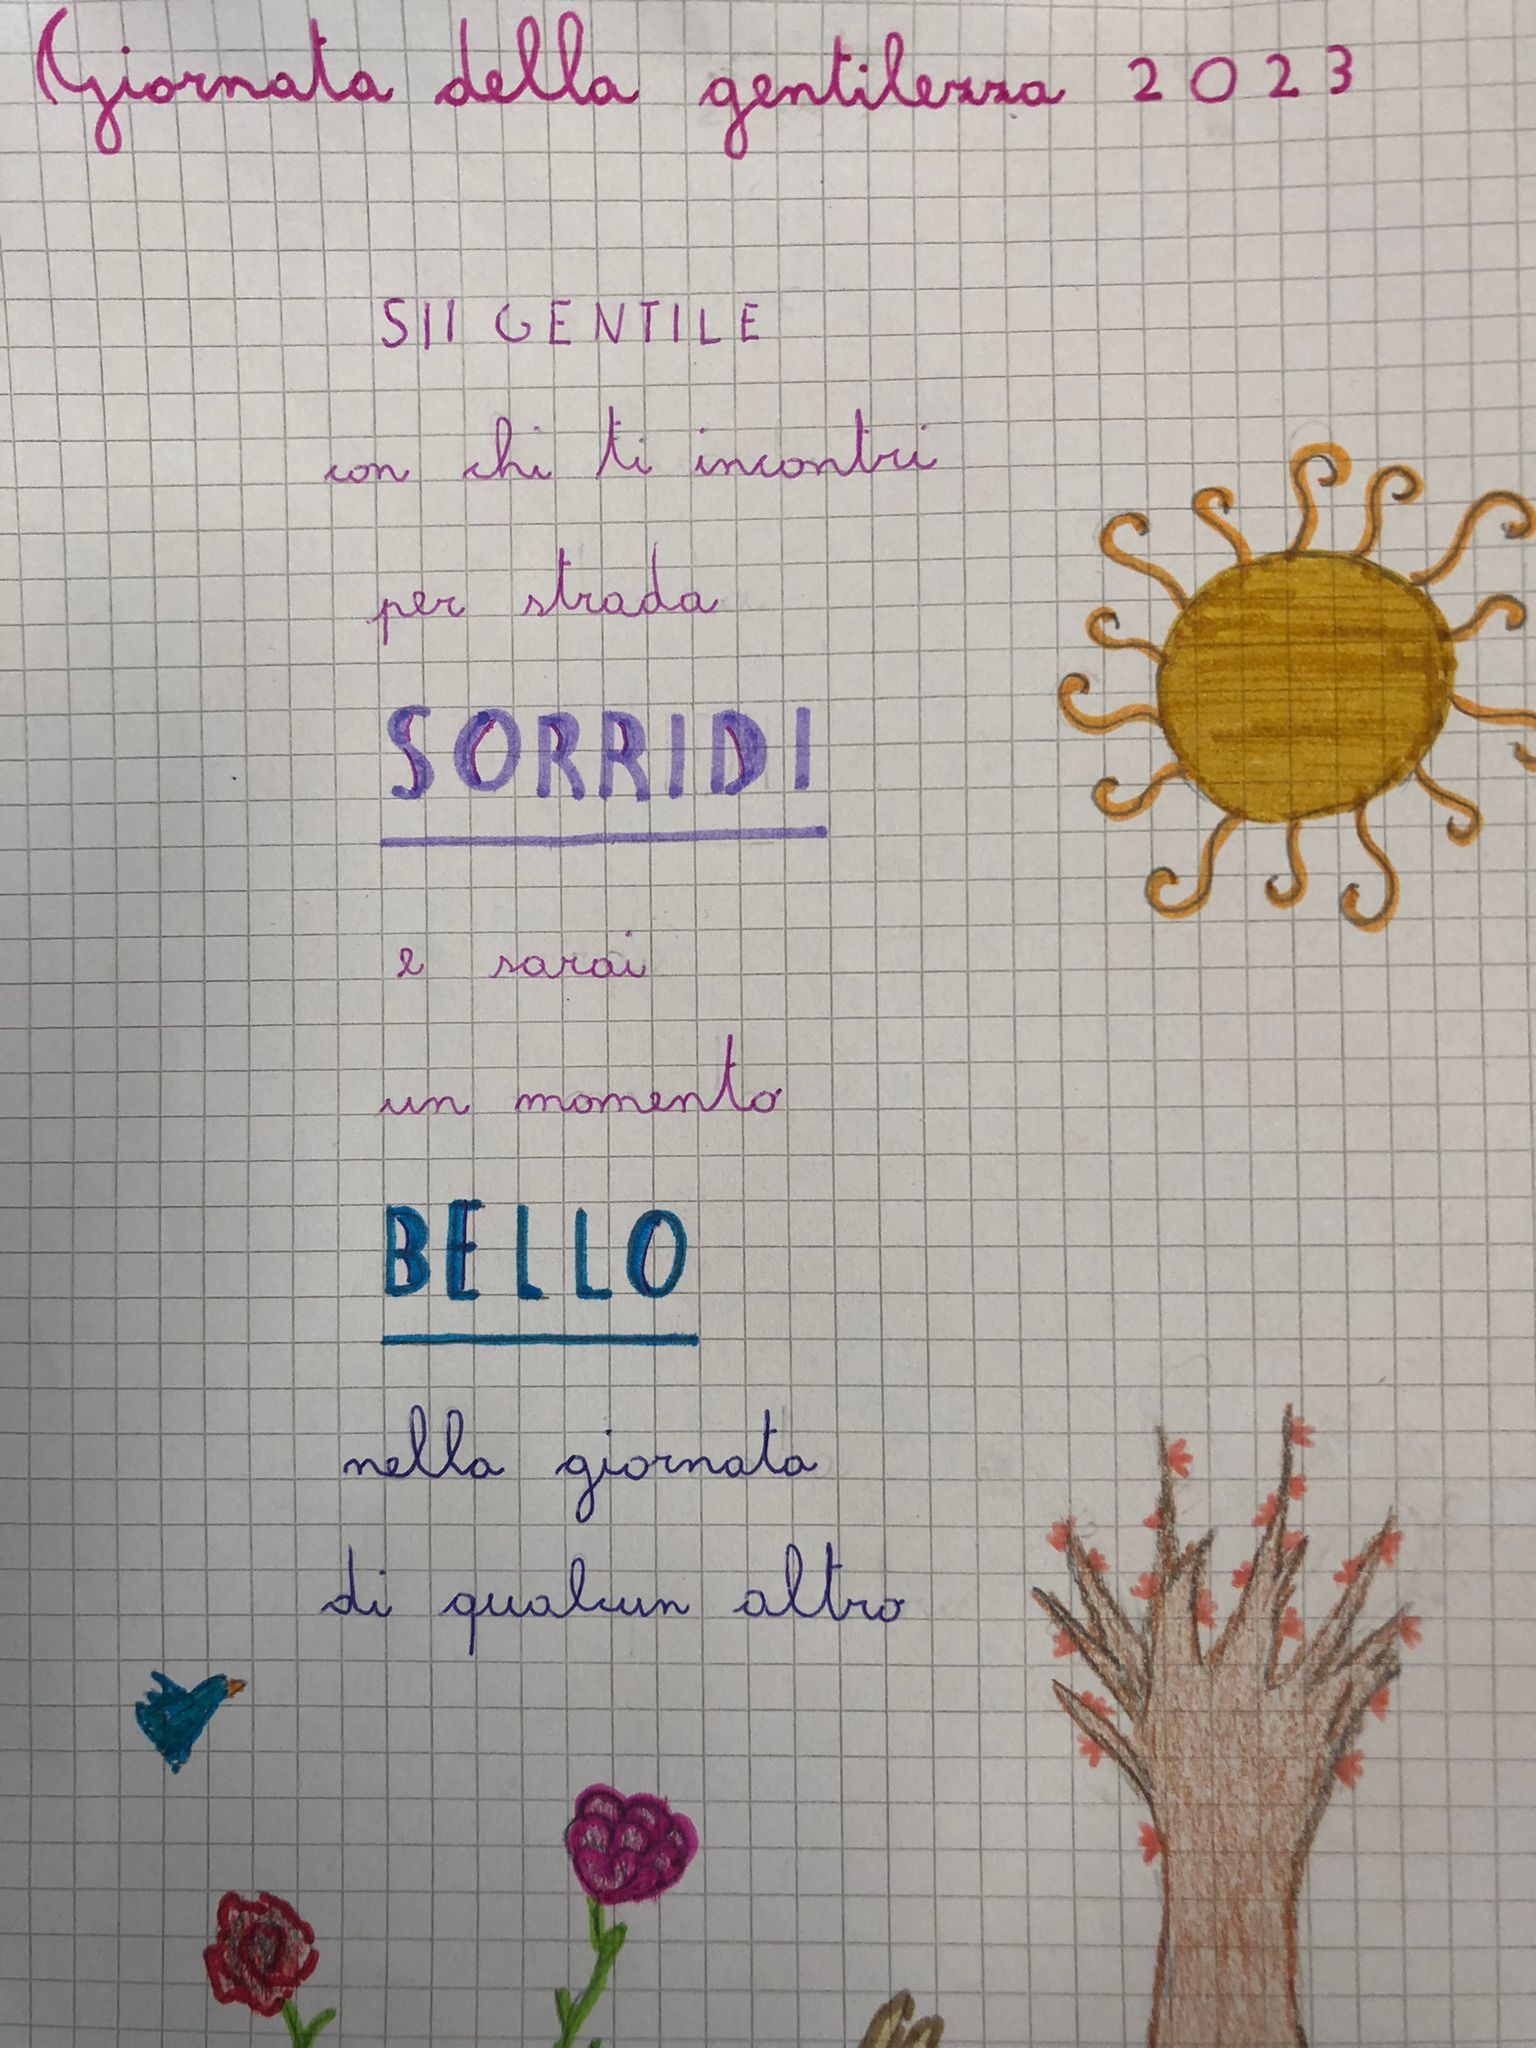 Giornata della gentilezza 2023
SII GENTILE
con chi ti incontri
per strada
SORRIDI
e sarai
un momento
BELLO
nella giornata
di qualcun altro